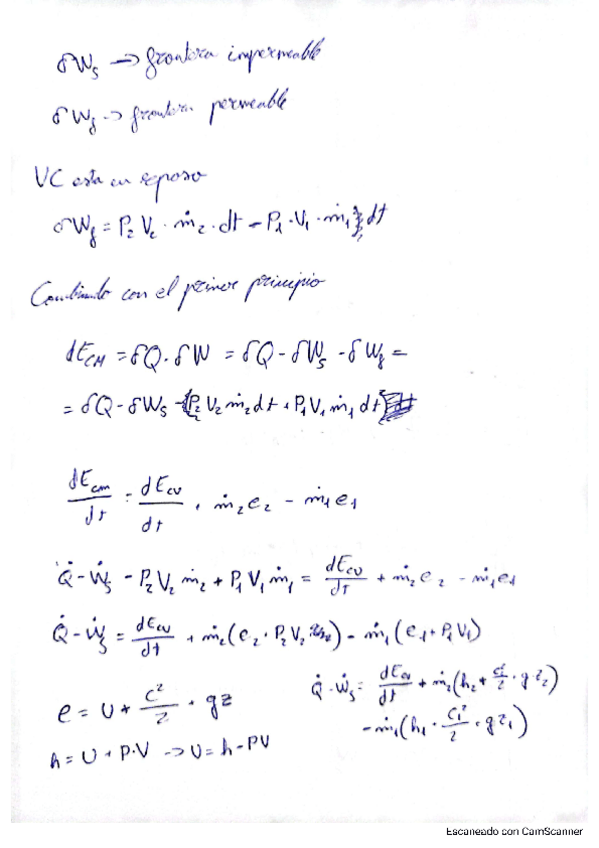 δWs → frontera impermeable
δWf → frontera permeable
VC esta en reposo
δWf = P2 V2 · ṁ2 · dt - P1 · V1 · ṁ1 dt
Combinando con el primer principio
dECM = δQ - δW = δQ - δWs - δWf =
= δQ - δWs - P2 V2 ṁ2 dt + P1 V1 ṁ1 dt
dEcm/dt = dEcv/dt + ṁ2 e2 - ṁ1 e1
Q̇ - Ẇs - P2 V2 ṁ2 + P1 V1 ṁ1 = dEcv/dt + ṁ2 e2 - ṁ1 e1
Q̇ - Ẇs = dEcv/dt + ṁ2 (e2 + P2 V2) - ṁ1 (e1 + P1 V1)
e = U + c²/2 + gz
h = U + P·V → U = h - PV
Q̇ - Ẇs = dEcv/dt + ṁ2 (h2 + c2²/2 + g z2)
- ṁ1 (h1 + c1²/2 + g z1)
Escaneado con CamScanner